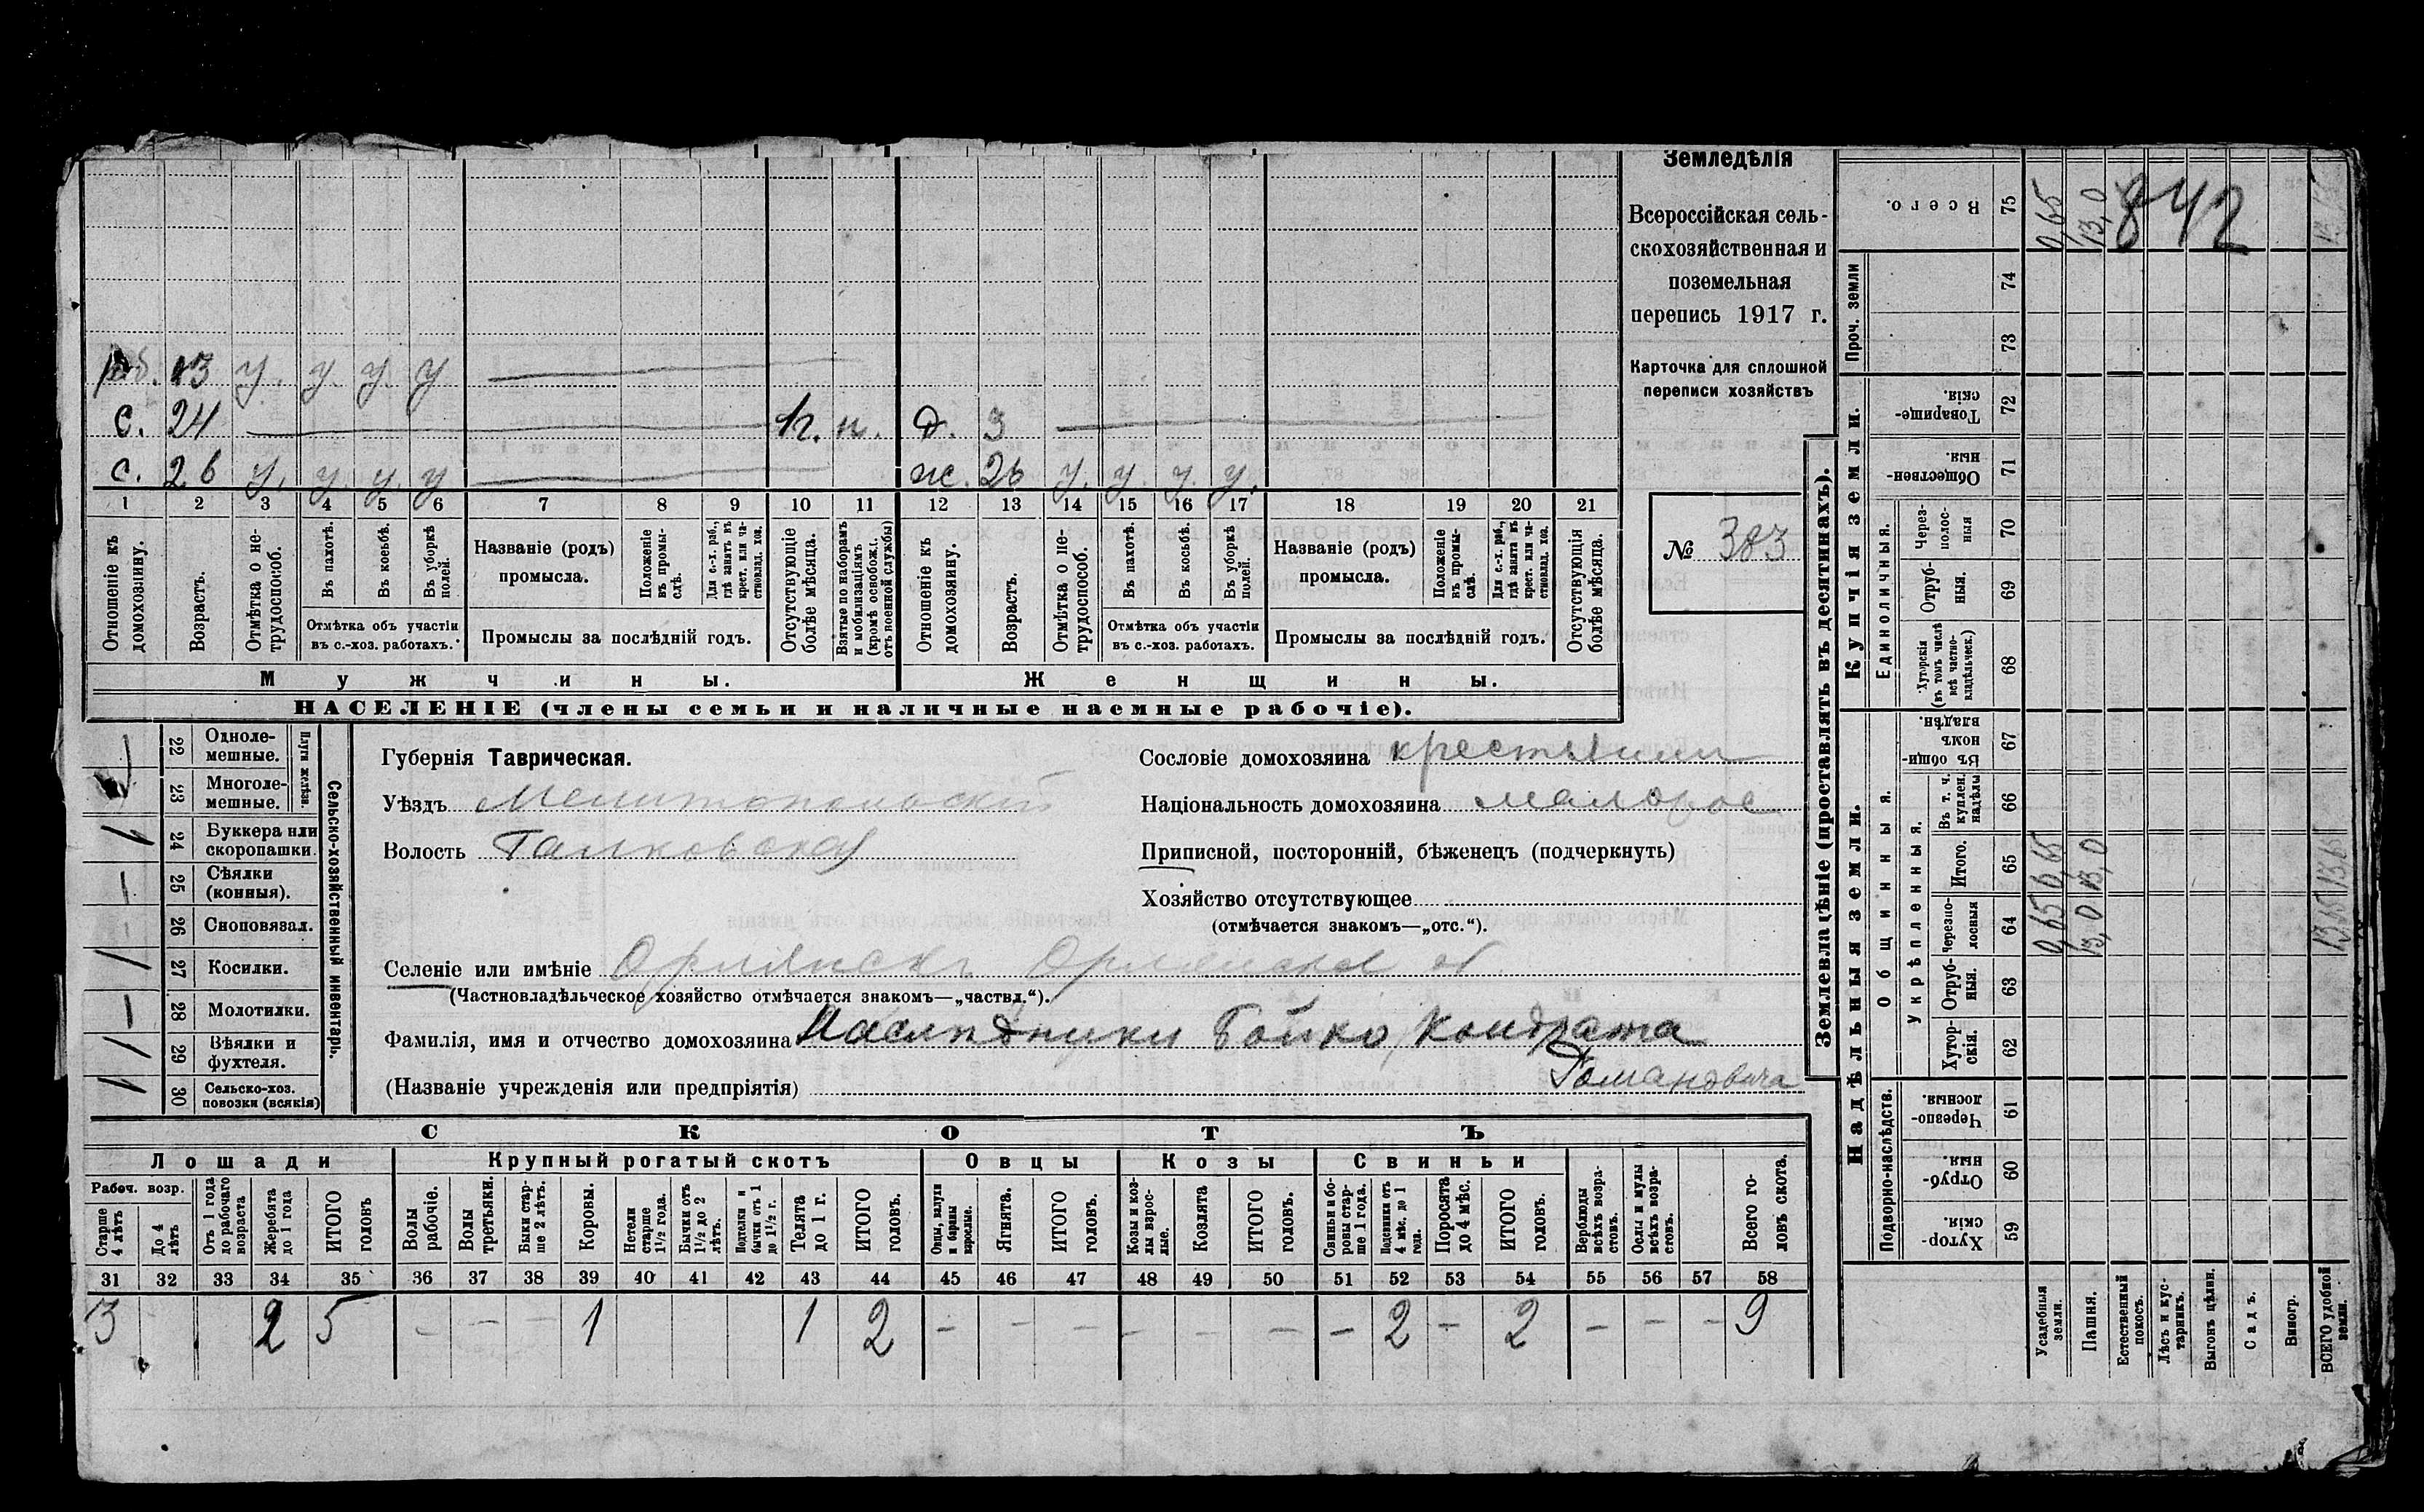 Земледѣлія
Всероссійская сель-
скохозяйственная и
поземельная
перепись 1917 г.
Карточка для сплошной
переписи хозяйствъ
№ 383
раб. 13 у. у. у. у
с. 24 н. н. д. 3
с. 26 у. у. у. у ж. 26 у. у. у. у.
1 2 3 4 5 6 7 8 9 10 11 12 13 14 15 16 17 18 19 20 21
Отношеніе къ домохозяину.
Возрастъ.
Отмѣтка о не-трудоспособ.
Въ пахотѣ.
Въ косьбѣ.
Въ уборкѣ полей.
Отмѣтка объ участіи
въ с.-хоз. работахъ.
Названіе (родъ)
промысла.
Положеніе въ промы-слѣ.
Для с.-х. раб., гдѣ занятъ въ крест. или ча-стновлад. хоз.
Промыслы за послѣдній годъ.
Отсутствующіе болѣе мѣсяца.
Взятые по наборамъ и мобилизаціямъ (кромѣ освобож. отъ военной службы)
Отношеніе къ домохозяину.
Возрастъ.
Отмѣтка о не-трудоспособ.
Въ пахотѣ.
Въ косьбѣ.
Въ уборкѣ полей.
Отмѣтка объ участіи
въ с.-хоз. работахъ.
Названіе (родъ)
промысла.
Положеніе въ промы-слѣ.
Для с.-х. раб., гдѣ занята въ крест. или ча-стновлад. хоз.
Промыслы за послѣдній годъ.
Отсутствующія болѣе мѣсяца.
Мужчины. Женщины.
НАСЕЛЕНІЕ (члены семьи и наличные наемные рабочіе).
22 Одноле-мешные.
23 Многоле-мешные.
Плуги желѣзн.
1 24 Буккера или скоропашки.
25 Сѣялки (конныя).
26 Сноповязал.
1 27 Косилки.
28 Молотилки.
1 29 Вѣялки и фухтеля.
1 30 Сельско-хоз. повозки (всякія)
Сельско-хозяйственный инвентарь.
Губернія Таврическая.
Уѣздъ Мелитопольскій
Волость
Селеніе или имѣніе Орлянскъ
(Частновладѣльческое хозяйство отмѣчается знакомъ—„частвл.“).
Фамилія, имя и отчество домохозяина Наслѣдники Бойко, Кондрата
Романовича
(Названіе учрежденія или предпріятія)
Сословіе домохозяина крестьянин
Національность домохозяина малорос
Приписной, посторонній, бѣженецъ (подчеркнуть)
Хозяйство отсутствующее
(отмѣчается знакомъ—„отс.“).
СКОТЪ
Лошади Крупный рогатый скотъ Овцы Козы Свиньи
Рабоч. возр.
Старше 4 лѣтъ
До 4 лѣтъ
Отъ 1 года до рабочаго возраста
Жеребята до 1 года
ИТОГО головъ
Волы рабочіе.
Волы третьяки.
Быки стар-ше 2 лѣтъ.
Коровы.
Нетели старше 1½ года.
Бычки отъ 1½ до 2 лѣтъ.
Подтелки и бычки отъ 1 до 1½ г.
Телята до 1 г.
ИТОГО головъ.
Овцы, валухи и бараны взрослые.
Ягнята.
ИТОГО головъ.
Козы и коз-лы взрос-лые.
Козлята
ИТОГО головъ.
Свиньи и бо-ровы стар-ше 1 года.
Подсвинки отъ 4 мѣс. до 1 года.
Поросята до 4 мѣс.
ИТОГО головъ.
Верблюды всѣхъ возра-стовъ.
Ослы и мулы всѣхъ возра-стовъ.
Всего го-ловъ скота.
31 32 33 34 35 36 37 38 39 40 41 42 43 44 45 46 47 48 49 50 51 52 53 54 55 56 57 58
3 2 5 - - - 1 1 2 - - - - - - - 2 - 2 - - - 9
Землевладѣніе (проставлять въ десятинахъ).
Купчія земли.
Проч. земли
Единоличныя.
Надѣльныя земли.
Общинныя.
Укрѣпленныя.
Подворно-наслѣдств.
Всего. 75 0,65 13,0 842
74
73
Товарище-скія 72
Обществен-ныя. 71
Через-полос-ныя 70
Отруб-ныя. 69
Хуторскія (въ томъ числѣ всѣ частно-владѣльческ.) 68
Въ общин-номъ владѣн. 67
Въ т. ч. куплен. надѣлы 66
Итого. 65 0,65 13,0 13,65
Черезпо-лосныя 64 0,65 13,0 13,65
Отруб-ныя. 63
Хутор-скія. 62
Черезпо-лосныя. 61
Отруб-ныя. 60
Хутор-скія. 59
Усадебныя земли.
Пашня.
Естественный покосъ.
Лѣсъ и кус-тарникъ.
Выгонъ цѣлин.
Садъ.
Виногр.
ВСЕГО удобной земли.